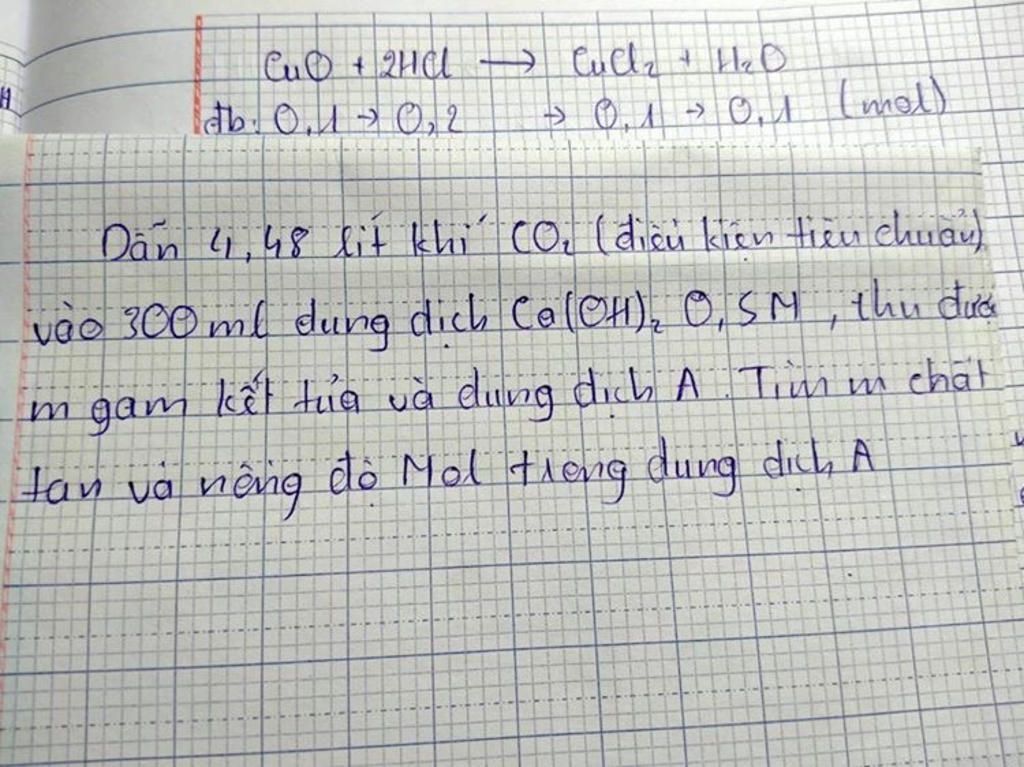 CuO + 2HCl → CuCl₂ + H₂O
đb: 0,1 → 0,2 → 0,1 → 0,1 (mol)
Dẫn 4,48 lít khí CO₂ (điều kiện tiêu chuẩn)
vào 300 ml dung dịch Ca(OH)₂ 0,5M, thu được
m gam kết tủa và dung dịch A. Tìm m chất
tan và nồng độ Mol trong dung dịch A